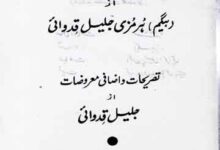 از
(بیگم) ہرمزی جلیل قدوائی
تصریحات و اضافی معروضات
از
جلیل قدوائی